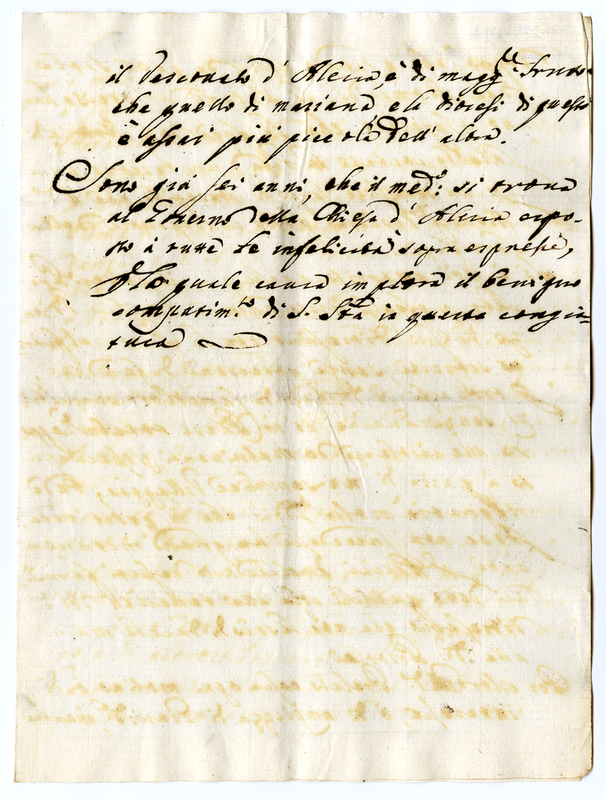 il Vescovato d' Aleria, è di magg.re frutto
che quello di mariana, e la diocesi di questo
è assai piu piccola dell' altra.
Sono già sei anni, che il med.o si trova
al Governo della Chiesa d' Aleria espo-
sto à tutte le infelicità sopra espresse,
Per la quale causa implora il benigno
compatim.to di S. Stà in questa congiun-
tura